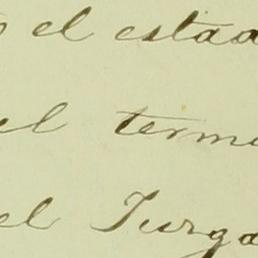 el estad
el term
el Jurga